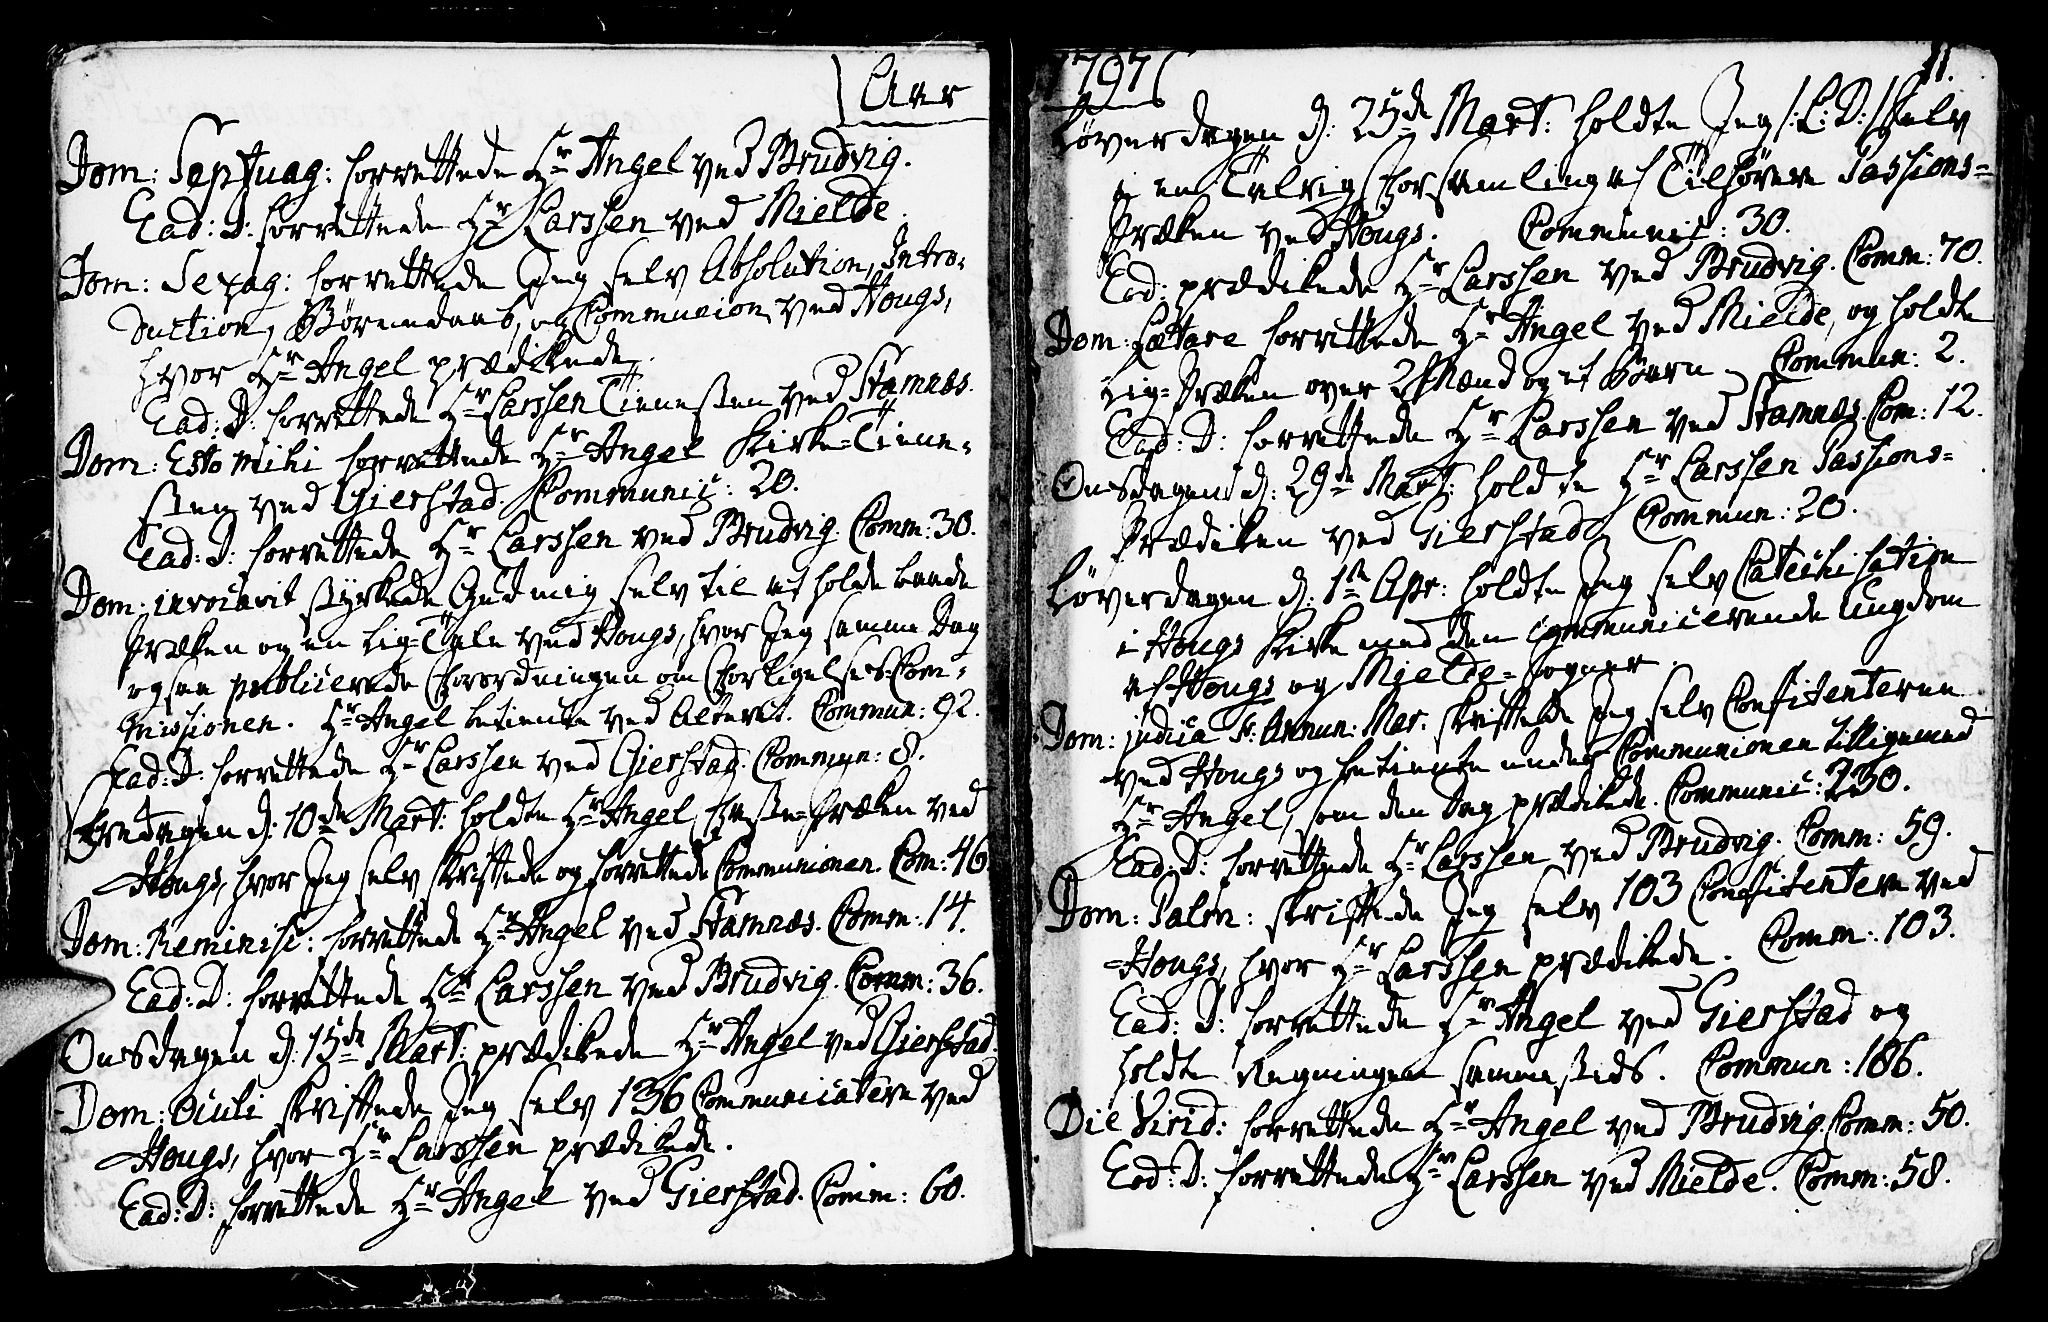 Aar
Dom: Septuag: forrettede Hr Angel ved Brudvig.
Ead: D: forrettede Hr Larssen ved Mielde.
Dom: Sexag: forrettede Jeg selv Absolution, Intro-
duction, Børnedaab, og Communion ved Hougs,
hvor Hr Angel prædikede.
Ead: D: forrettede Hr Larssen Tienesten ved Stamnæs.
Dom: Esto mihi forrettede Hr Angel Kirke-Tiene-
sten ved Gierstad. Communic: 20.
Ead: D: forrettede Hr Larssen ved Brudvig. Comm: 30.
Dom: invocavit styrkede Gud mig selv til at holde baade
Præken og en Lig-Tale ved Hougs, hvor Jeg samme Dag
ogsaa publicerede Forordningen om Forligelses-Com-
missionen. Hr Angel betiente ved Alteret. Commun: 92.
Ead: D: forrettede Hr Larssen ved Gierstad. Commun: 8.
Fredagen d: 10de Mart: holdte Hr Angel Faste-Præken ved
Hougs, hvor Jeg selv skriftede og forrettede Communionen. Com: 46
Dom: Reminisc: forrettede Hr Angel ved Stamnæs. Comm: 14.
Ead: D: forrettede Hr Larssen ved Brudvig. Comm: 36.
Onsdagen d: 15de Mart: prædikede Hr Angel ved Gierstad
Dom: Oculi skriftede Jeg selv 136 Communicatere ved
Hougs, hvor Hr Larssen prædikede.
Ead: D: forrettede Hr Angel ved Gierstad. Comm: 60.
1797
11.
Løverdagen d: 25de Mart: holdte Jeg /: L: D: / selv
i en Talrig Forsamling af Tilhørere Passions-
Præken ved Hougs. Communic: 30.
Ead: prædikede Hr Larssen ved Brudvig. Comm: 70.
Dom: Lætare forrettede Hr Angel ved Mielde, og holdte
Lig-Præken over 2 Mænd og et Barn. Commun: 2.
Ead: D: forrettede Hr Larssen ved Stamnæs. Com: 12.
Onsdagen d: 29de Mart: holdte Hr Larssen Passions-
Prædiken ved Gierstad. Commun: 20.
Løverdagen d: 1ste Apr: holdte Jeg selv Catechisation
i Hougs Kirke med den communicerende Ungdom
af Hougs og Mielde-Sogner.
Dom: judica Annun: Mar: skriftede Jeg selv Confitenterne
ved Hougs og betiente under Communionen tilligemed
Hr Angel, som den Dag prædikede. Communic: 230.
Ead: D: forrettede Hr Larssen ved Brudvig. Comm: 59.
Dom: Palm: skriftede Jeg selv 103 Confitentere ved
Hougs, hvor Hr Larssen prædikede. Comm: 103.
Ead: D: forrettede Hr Angel ved Gierstad og
holdte Regningen sammesteds. Commun: 186.
Die Virid: forrettede Hr Angel ved Brudvig. Comm: 50.
Ead: D: forrettede Hr Larssen ved Mielde. Comm: 58.